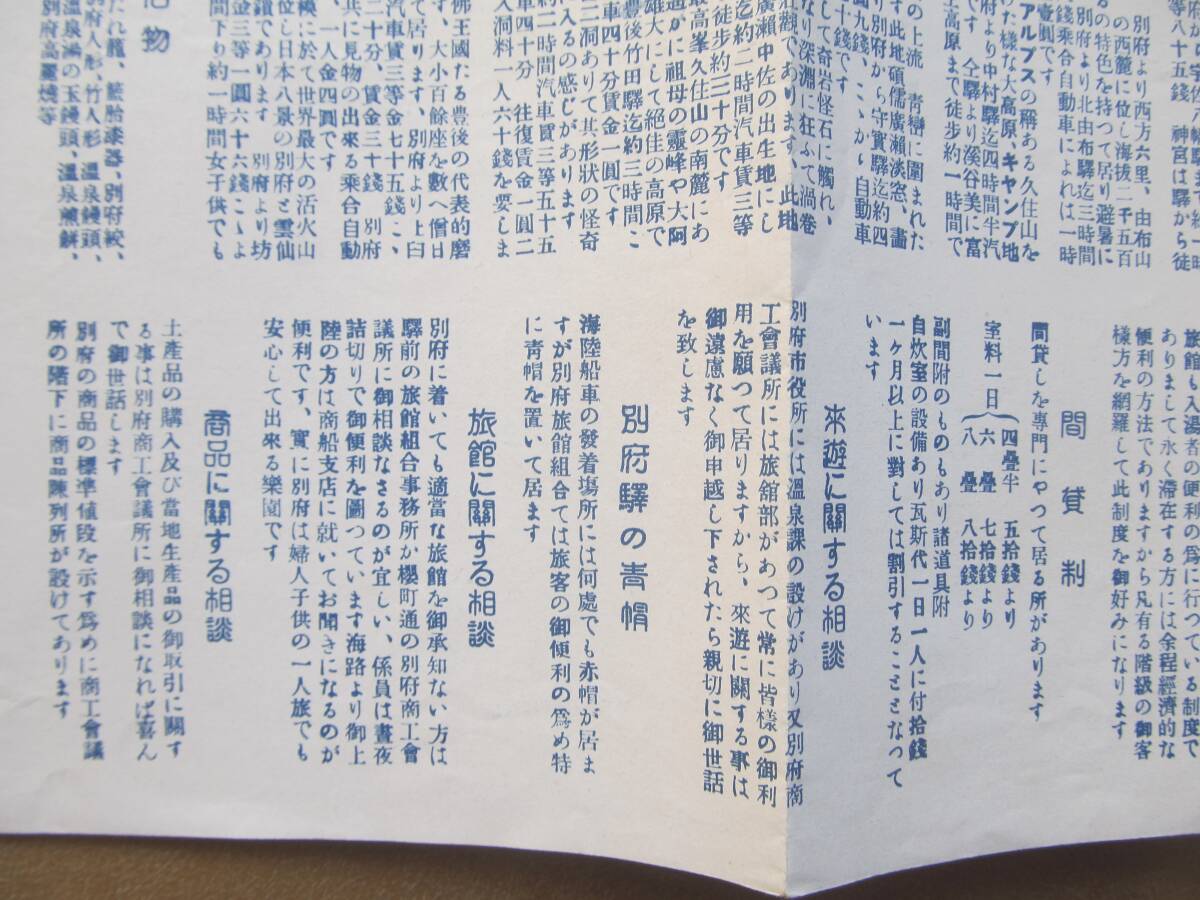 別府より西方六里、由布山
の西麓に位し海拔二千五百
の特色を持つて居り避暑に
別府より北由布驛迄三時間
錢乘合自動車によれば一時
壹圓です
アルプスの稱ある久住山を
けた樣な大高原、キャンプ地
府より中村驛迄四時間半汽
です 仝驛より溪谷美に富
高原まで徒步約一時間で
の上流 青巒に圍まれた
す此地碩儒廣瀨淡窓、畵
り別府から守實驛迄約四
圓九錢、こゝから自動車
十錢です
して奇岩怪石に觸れ、
なり深淵に狂ふて渦卷
壯觀であります、此地
廣瀨中佐の出生地にし
迄約二時間汽車賃三等
徒步約三十分です
最高峯久住山の南麓にあ
遥かに祖母の靈峰や大阿
雄大にして絕佳の高原で
豊後竹田驛迄約三時間こ
車四十分賃金一圓です
二洞ありて其形狀の怪奇
に入るの感じがあります
約二時間汽車賃三等五十五
車四十分 往復賃金一圓二
入洞料一人六十錢を要しま
佛王國たる豊後の代表的磨
す、大小百餘座を數へ僧日
て居ります、別府より上臼
汽車賃三等金七十五錢こゝ
二十分、賃金三十錢 別府
共に見物の出來る乘合自動
、一人金四圓です
模に於て世界最大の活火山
位し日本八景の別府と雲仙
鎖であります 別府より坊
金三等一圓六十六錢こゝよ
間下り約一時間女子供でも
物
たれ籠、籃胎漆器、別府絞、
府人形、竹人形、溫泉饅頭、
溫泉染の玉饅頭、溫泉煎餅、
別府高麗燒等
旅館も入湯者の便利の爲に行つている制度で
ありまして永く滯在する方には余程經濟的な
便利の方法でありますから凡有る階級の御客
樣方を網羅して此制度を御好みになります
間貸制
間貸しを專門にやつて居る所があります
室料一日 四疊半 五拾錢より
六疊 七拾錢より
八疊 八拾錢より
副間附のものもあり諸道具附
自炊室の設備あり瓦斯代一日一人に付拾錢
一ヶ月以上に對しては割引することとなつて
います
來遊に關する相談
別府市役所には溫泉課の設けがあり又別府商
工會議所には旅舘部があつて常に皆樣の御利
用を願つて居りますから、來遊に關する事は
御遠慮なく御申越し下されたら親切に御世話
を致します
別府驛の靑帽
海陸船車の發着場所には何處でも赤帽が居ま
すが別府旅館組合では旅客の御便利の爲め特
に靑帽を置いて居ます
旅館に關する相談
別府に着いても適當な旅館を御承知ない方は
驛前の旅館組合事務所か櫻町通の別府商工會
議所に御相談なさるのが宜しい、係員は晝夜
詰切りで御便利を圖つています海路より御上
陸の方は商船支店に就いてお聞きになるのが
便利です、實に別府は婦人子供の一人旅でも
安心して出來る樂園です
商品に關する相談
土產品の購入及び當地生產品の御取引に關す
る事は別府商工會議所に御相談になれば喜ん
で御世話します
別府の商品の標準値段を示す爲めに商工會議
所の階下に商品陳列所が設けてあります